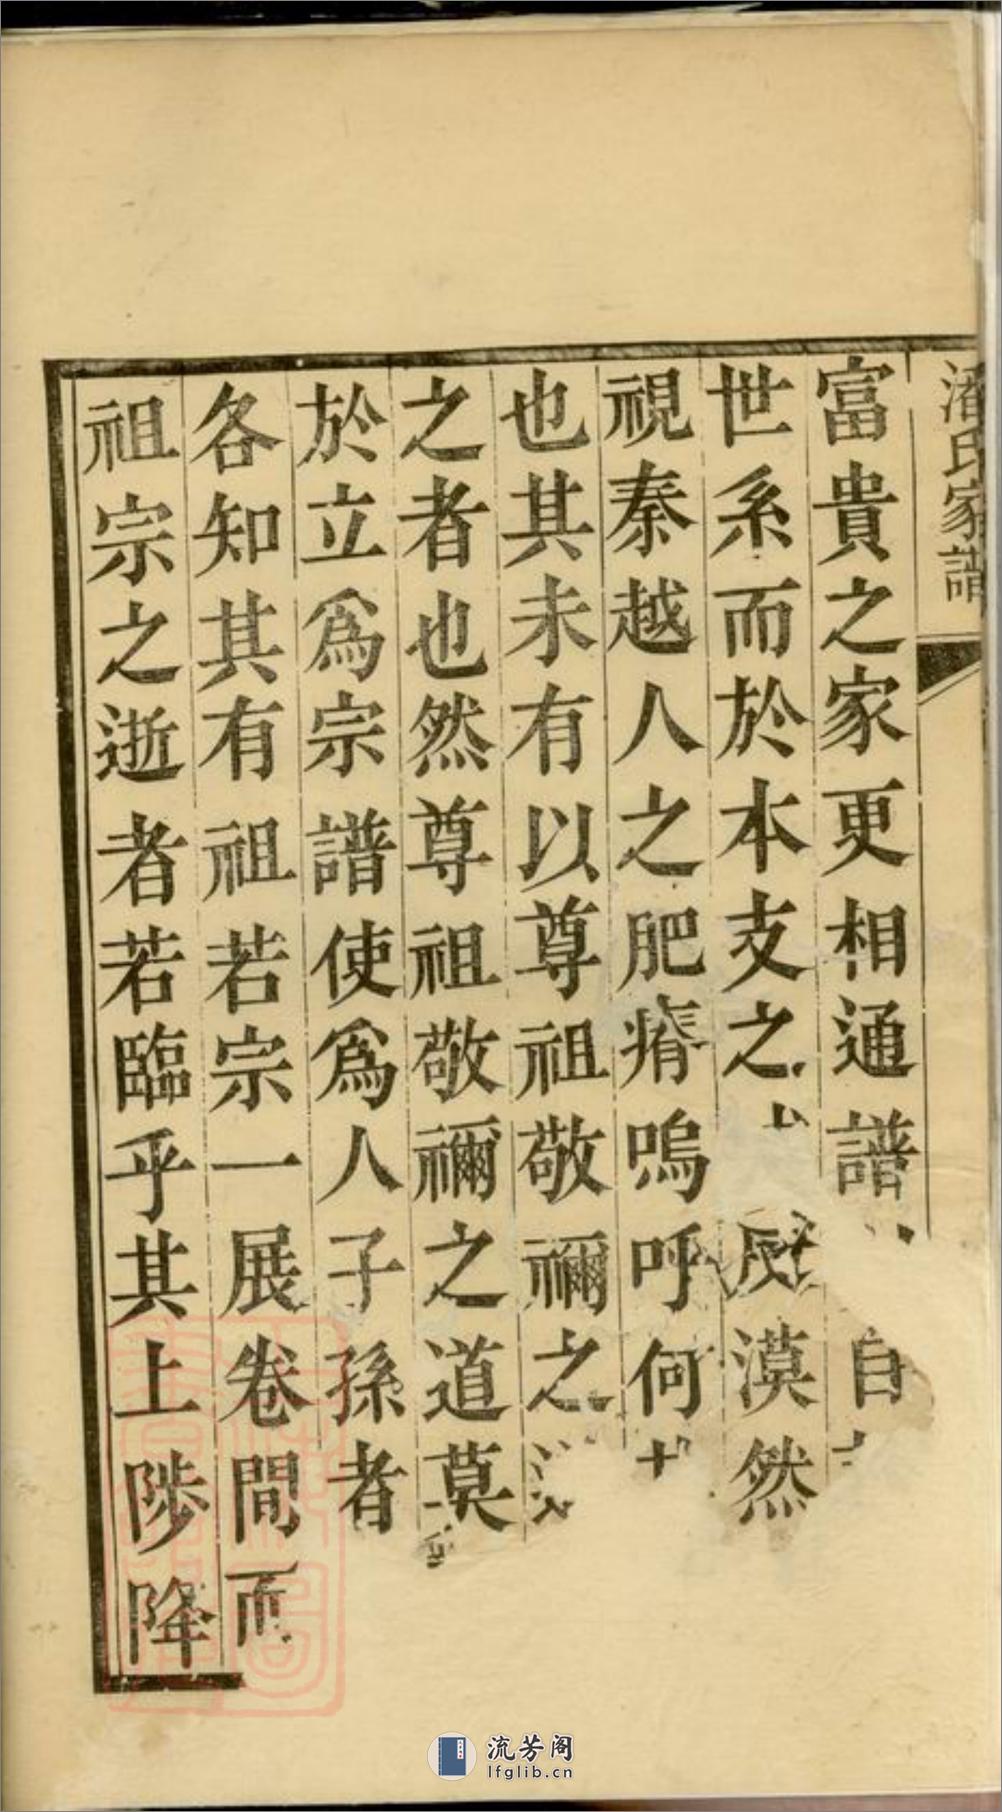 潘氏家譜
富貴之家更相通譜自
世系而於本支之反漠然
視秦越人之肥瘠嗚呼何
也其未有以尊祖敬禰之
之者也然尊祖敬禰之道莫
於立爲宗譜使爲人子孫者
各知其有祖若宗一展卷間而
祖宗之逝者若臨乎其上陟降
流芳阁
lfglib.cn